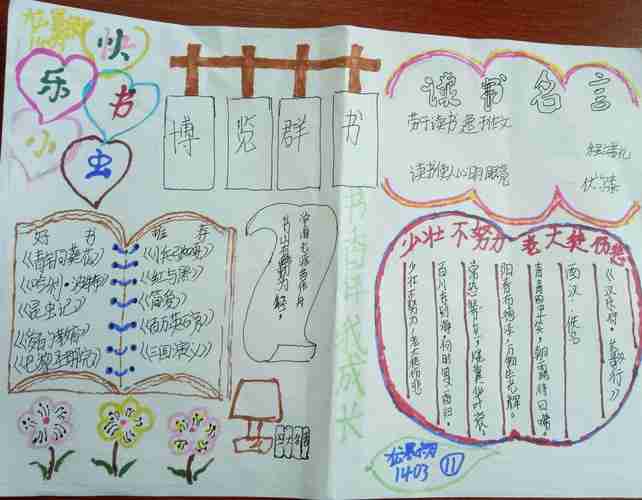 1403
快乐书小虫
博览群书
读书名言
劳于读书 逸于作文
读书使人心明眼亮
好书
推荐
《青铜葵花》
《哈利·波特》
《昆虫记》
《红与黑》
《简爱》
《百万英镑》
《巴黎圣母院》
《三国演义》
书山有路勤为径。
书香伴我成长
四大名著
少壮不努力 老大徒伤悲
《汉乐府·长歌行》
西汉·佚名
青青园中葵,朝露待日晞。
阳春布德泽,万物生光辉。
常恐秋节至,焜黄华叶衰。
百川东到海,何时复西归。
少壮不努力,老大徒伤悲
1403
11